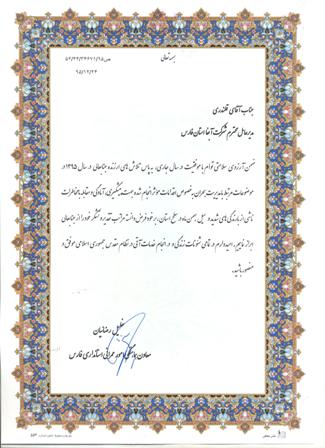 بسمه تعالی
ص/۹۵/۵۴/۴۴/۳۴۶۷۱
۹۵/۱۲/۲۴
جناب آقای قلندری
مدیرعامل محترم شرکت آبفا استان فارس
ضمن آرزوی سلامتی توام با موفقیت در سال جاری، به پاس تلاش های ارزنده جنابعالی در سال ۱۳۹۵ در
موضوعات مرتبط با مدیریت بحران به خصوص اقدامات مؤثر انجام شده جهت پیشگیری، آمادگی و مقابله با مخاطرات
ناشی از بارندگی های شدید و سیل بهمن ماه در سطح استان، بر خود فرض دانسته مراتب تقدیر و تشکر خود را از جنابعالی
ابراز نماییم. امیدوارم در تمامی شئونات زندگی و در انجام خدمات آتی در نظام مقدس جمهوری اسلامی موفق و
منصور باشید.
خلیل رضائیان
معاون هماهنگی امور عمرانی استانداری فارس